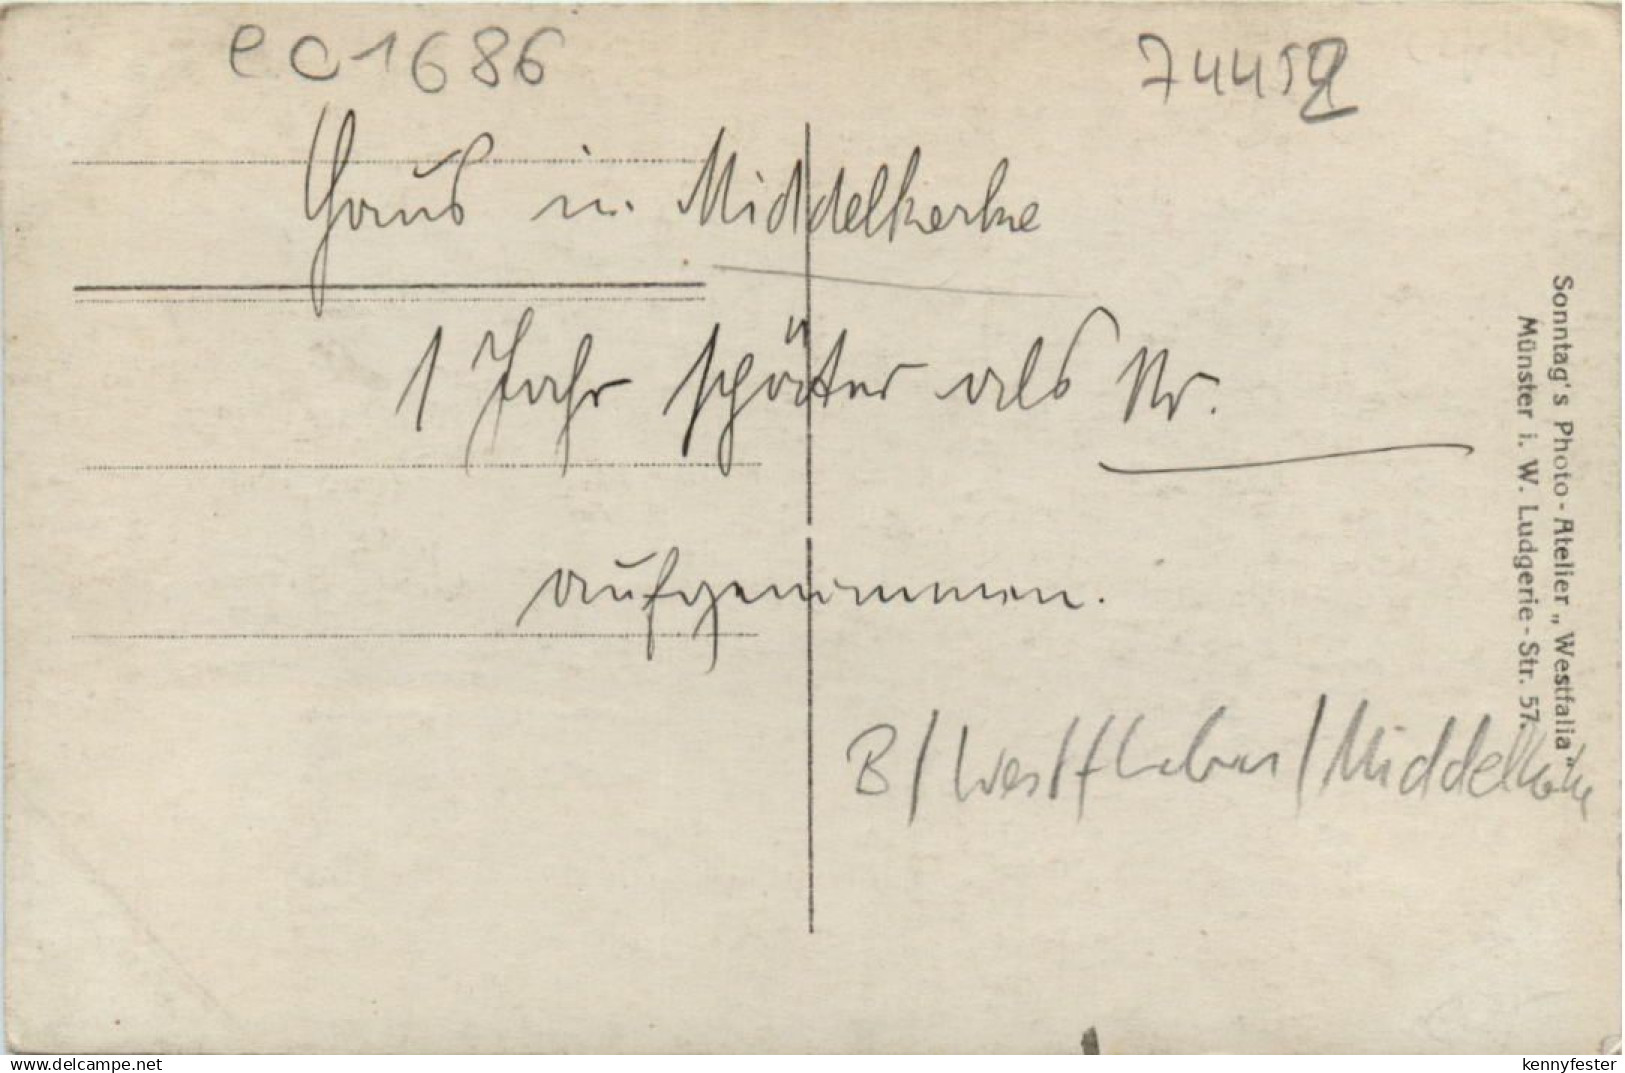 ec1686
74452
Haus in Middelkerke
1 Jahr später als Nr.
aufgenommen.
B/Westflandern/Middelkerke
Sonntag's Photo-Atelier „Westfalia"
Münster i. W. Ludgerie-Str. 57.
www.delcampe.net
kennyfester